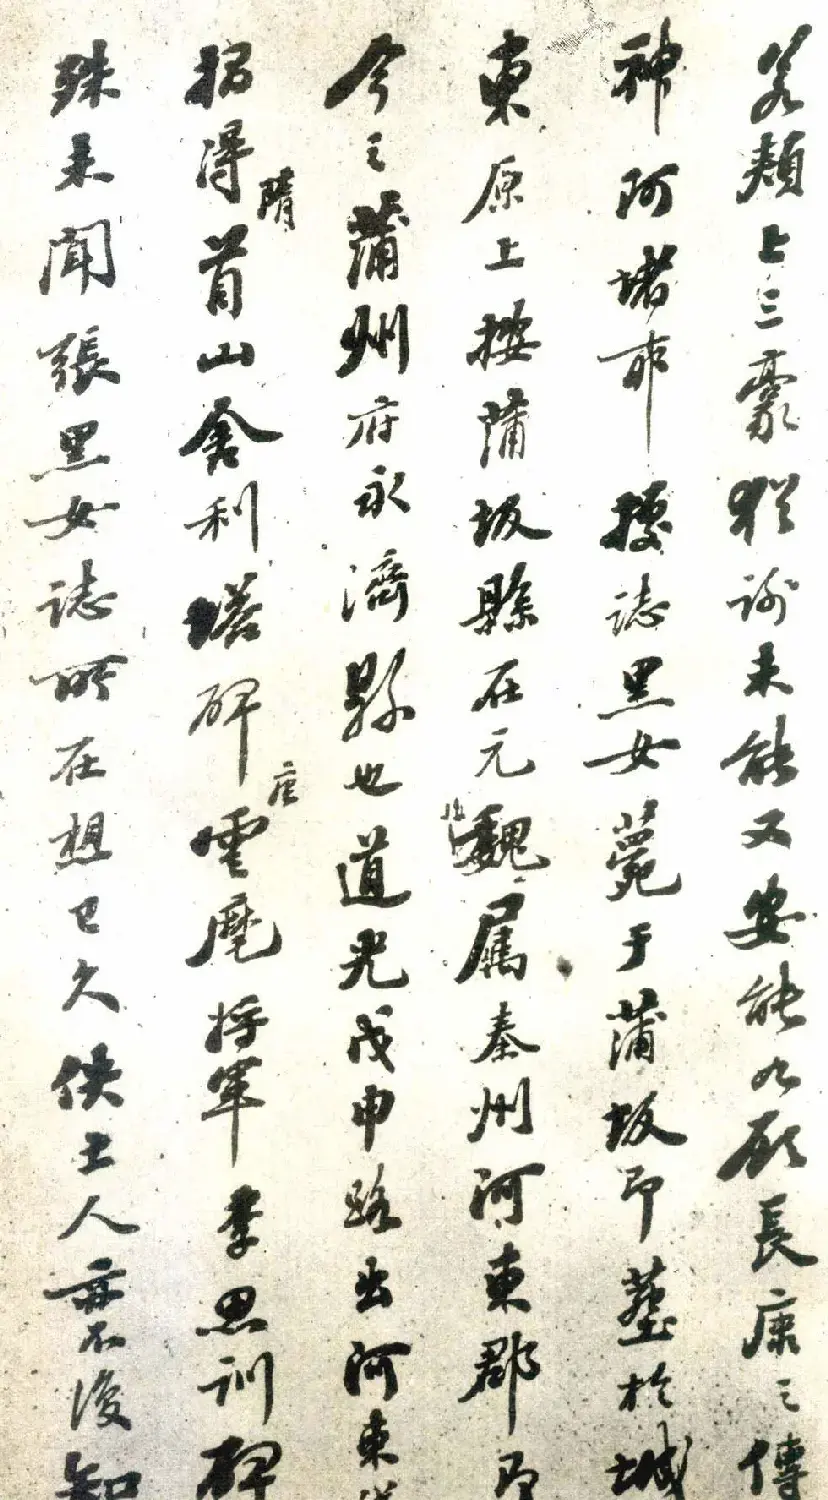 若頰上三豪猶謝未能又安能如顧長康之傳
神阿堵耶據誌黑女薨于蒲坂即塟於城
東原上按蒲坂縣在元魏屬秦州河東郡即
今之蒲州府永濟縣也道光戊申路出河東
搨得隋首山舍利塔碑唐雲麾將軍李思訓碑
殊未聞張黑女誌所在想已久佚土人亦不復知